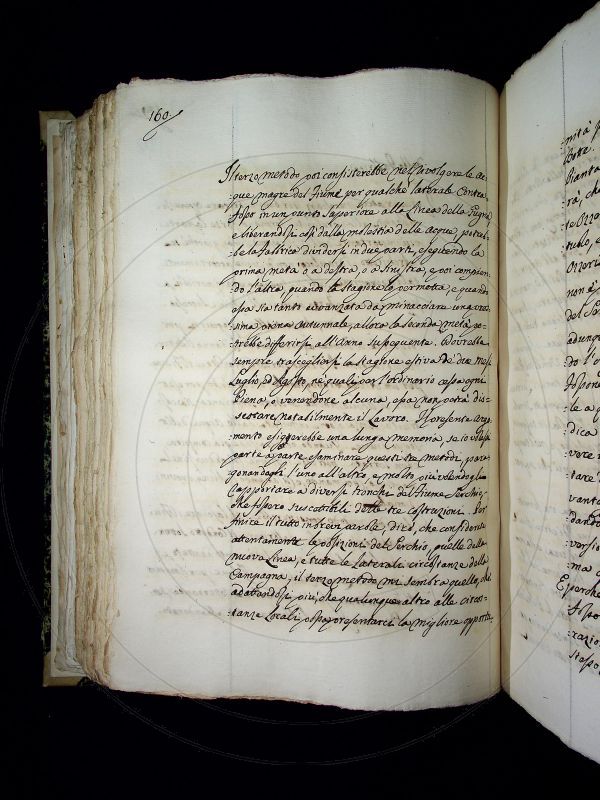 160.
Il terzo metodo poi consisterebbe nell'involgere le ac=
=que magre del Fiume per qualche laterale Contra
fosso in un punto superiore alla Linea della Pugna
e liberandosi così dalla molestia delle acque, potreb=
=be la fabbrica dividersi in due parti, eseguendo la
prima metà o a destra, o a sinistra, e poi compien=
do l'altra, quando la stagione lo permetta, e quando
essa sia tanto avvanzata da minacciare una pros
sima piena autunnale, allora la seconda metà po=
=trebbe differirsi all'Anno susseguente. Dovrebbe
sempre trascegliersi la stagione estiva de' due mesi
Luglio, ed Agosto, ne' quali per l'ordinario cessa ogni
Piena, o venendone alcuna, essa non potrà dis=
=sestare notabilmente il Lavoro. Il presente argo
mento esiggerebbe una lunga memoria, se io volessi
parte a parte esaminare questi tre metodi, para=
gonandogli l'uno all'altro, e molto più volendogli
rapportare a diversi tronchi del Fiume Serchio,
che fossero suscettibili delle tre costruzioni. Per
finire il tutto in brevi parole, dirò, che considerate
attentamente le posizioni del Serchio, quelle della
nuova Linea, e tutte le laterali circostanze della
Campagna, il terzo metodo mi sembra quello, che
adattandosi più, che qualunque altro alle circos=
=tanze locali, possa presentarci la migliore opportu=
=nità
Botte.
Pianta
rà, che
te Ozze
tubo, e
Ozzeri
non è
del Se
adung
do l'
le a
dica
vere
tare
vanta
dando
versio
ma
E perche
fosso
razio
stesso